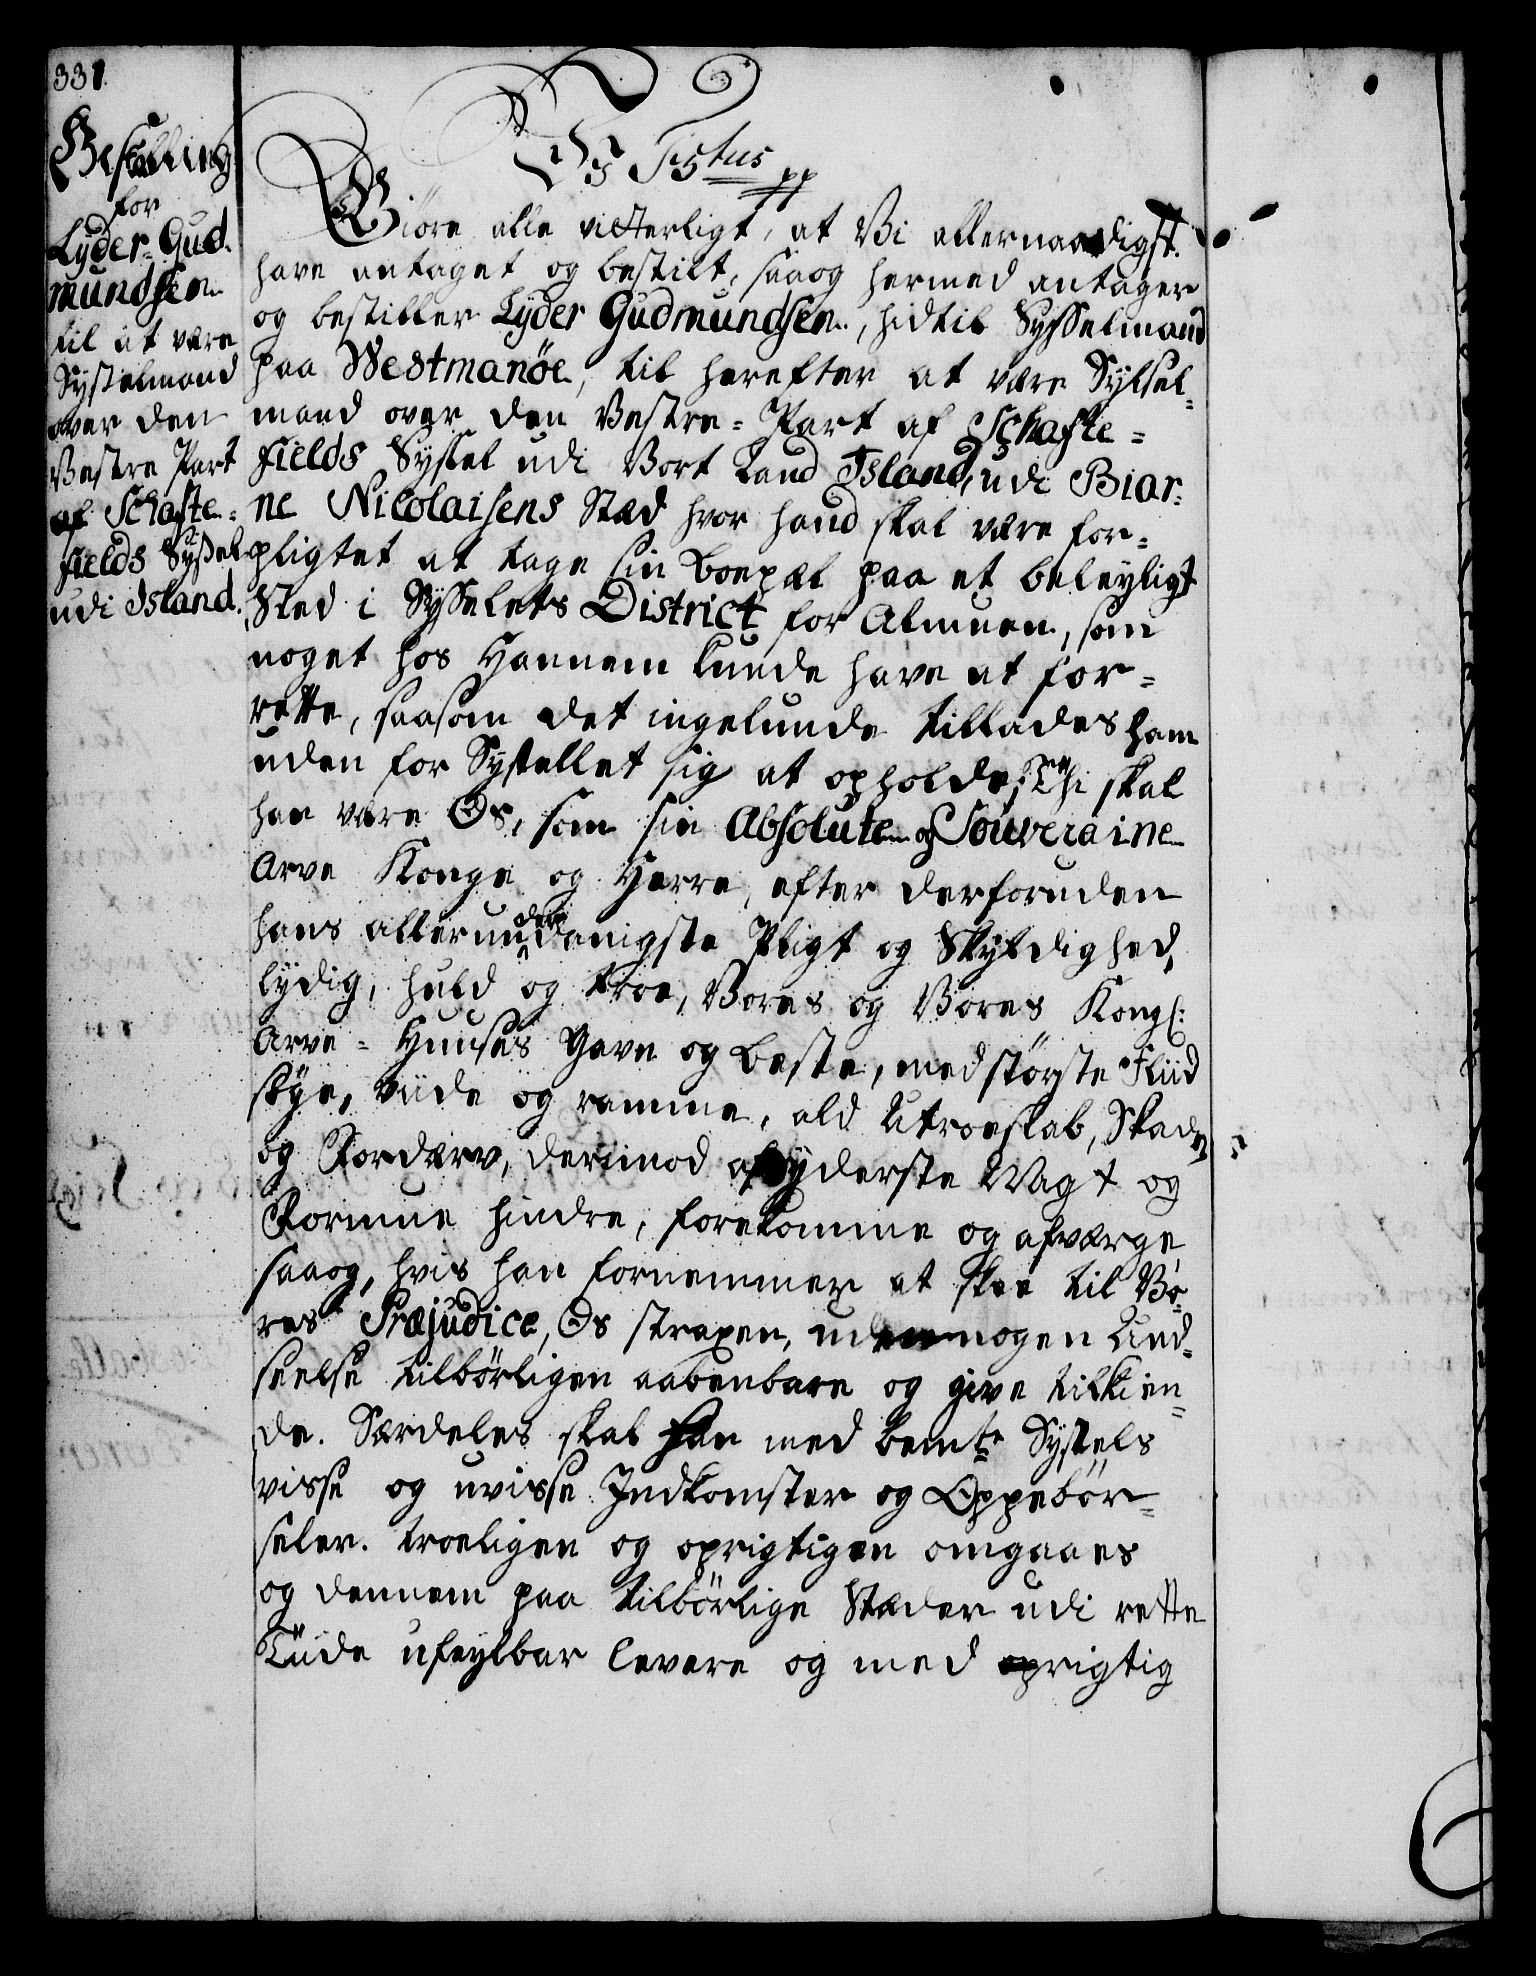 331.
Bestalling
for
Lyder Gud-
mundsen
til at være
Systelmand
over den
Vestre Part
af Schafte-
fields Syssel
udi Island.
Ch 6tus pp
Giöre alle vitterligt, at Vi allernaadigst
have antaget og bestilt, saaog hermed antager
og bestiller Lyder Gudmundsen, hidtil Sysselmand
paa Westmanöe, til herefter at være Syssel-
mand over den Vestre-Part af Schafte-
fields Syssel udi Vort Land Island, udi Biar-
ne Nicolaisens Stæd hvor hand skal være for-
pligtet at tage sin Boepæl paa et beleyligt
Sted i Sysselets District for Almuen, som
noget hos Hannem kunde have at for-
rette, saasom det ingelunde tillades ham
uden for Systellet sig at opholde; Thi skal
han være Os, som sin Absolute og Souveraine
Arve Konge og Herre, efter derforuden
hans allerunderdanigste Pligt og Skyldighed,
lydig, huld og troe, Vores og Vores Kongl:
Arve-Huuses Gavn og Beste, med störste Fliid
söge, viide og ramme, ald Utroeskab, Skade
og Fordærv, derimod af yderste Magt og
Formue hindre, forekomme og afværge
saaog, hvis han fornemmer at skee til Vo-
res Præjudice, Os straxen, uden nogen Und-
seelse tilbörligen aabenbare og give tilkien-
de. Særdeles skal han med bemte Systels
visse og uvisse Indkomster og Oppebör-
seler troeligen og oprigtigen omgaaes
og dennem paa tilbörlige Stæder udi rette
Tiide ufeylbar levere og med oprigtig